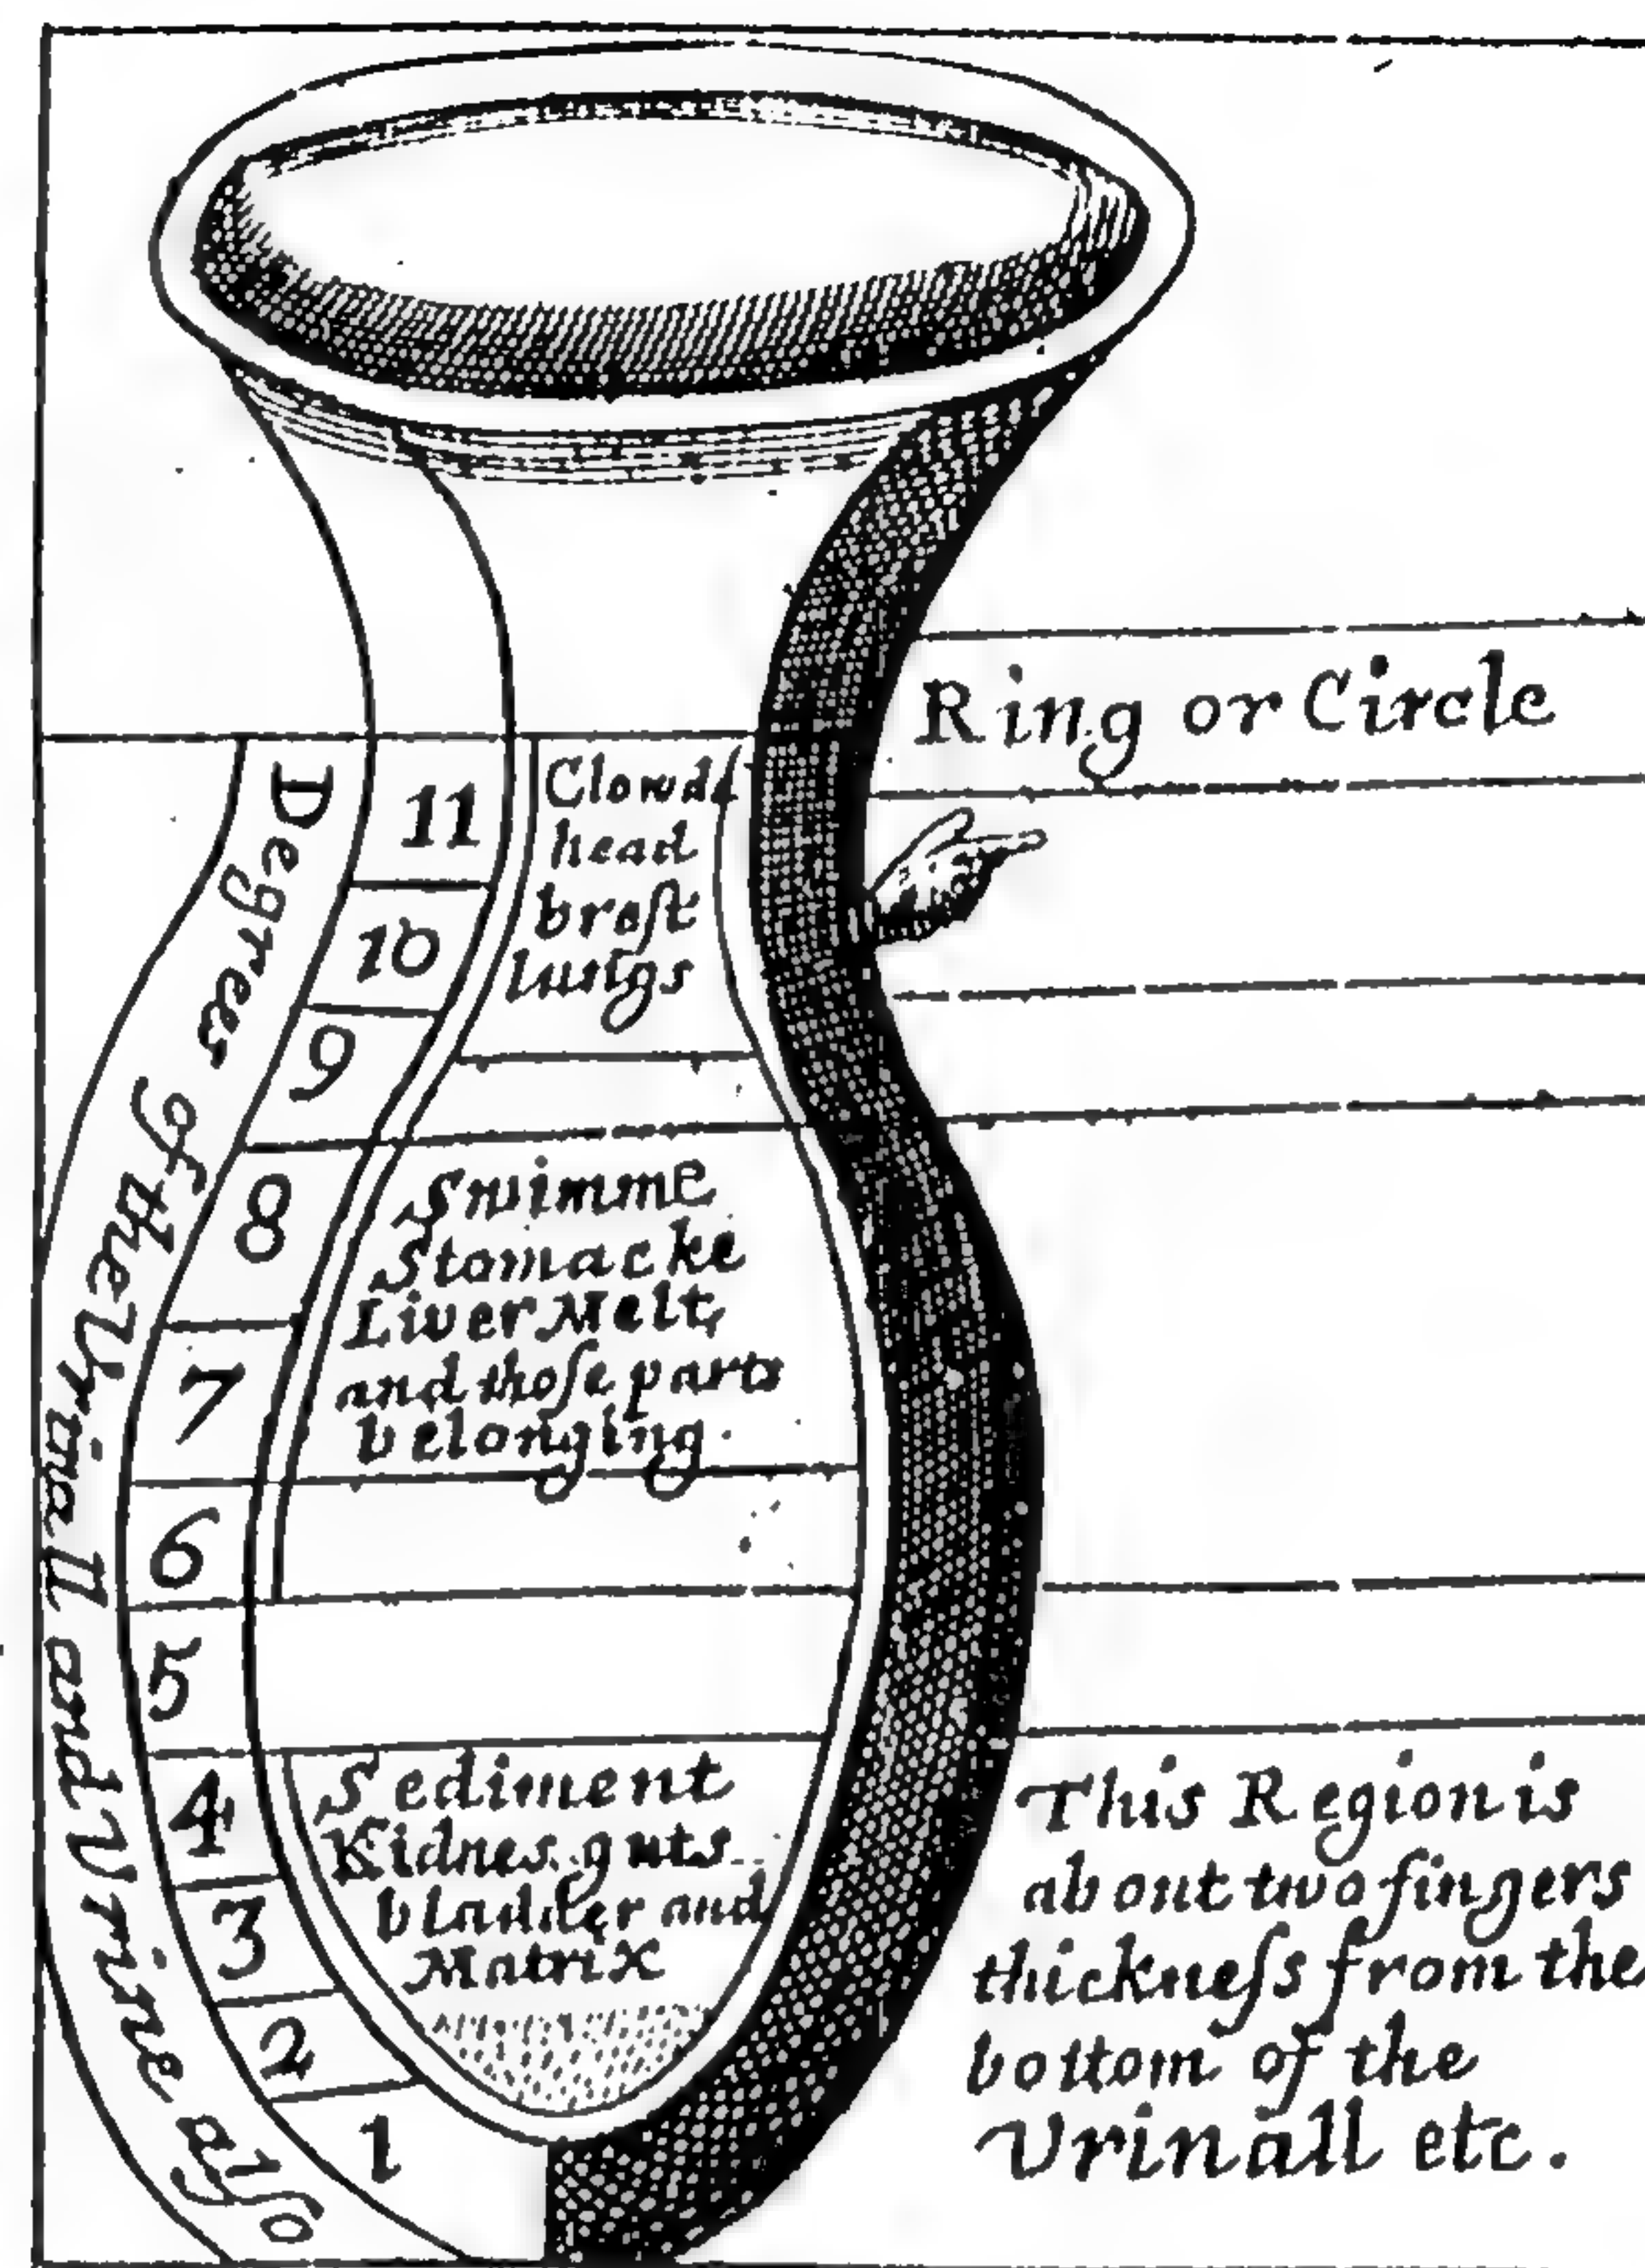 Ring or Circle
Degrees of the Vrinall and Vrine also
11
10
9
8
7
6
5
4
3
2
1
Clowds
head
breſt
lungs
Swimme
Stomacke
Liver Melt,
and thoſe parts
belonging.
Sediment
Kidnes. guts
bladder and
Matrix
This Region is
about two fingers
thickneſs from the
bottom of the
Urinall etc.